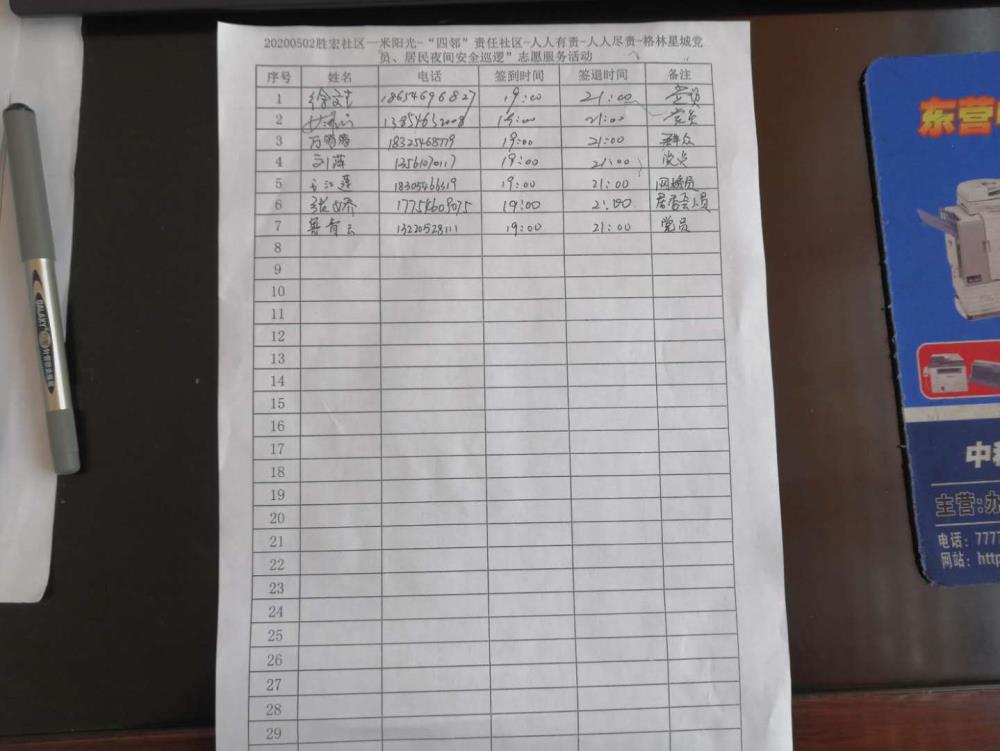 20200502胜宏社区一米阳光-“四邻”责任社区-人人有责-人人尽责-格林星城党
员、居民夜间安全巡逻”志愿服务活动
序号 姓名 电话 签到时间 签退时间 备注
1 18654696827 19:00 21:00 党员
2 19:00 21:00 党员
3 18325468779 19:00 21:00 群众
4 刘萍 13561070117 19:00 21:00 党员
5 18305466319 19:00 21:00 网格员
6 张娇 17754609075 19:00 21:00
7 13220528111 19:00 21:00 党员
8
9
10
11
12
13
14
15
16
17
18
19
20
21
22
23
24
25
26
27
28
29
东营
中
主营:办
电话: 7777
网站: http
GALAXY